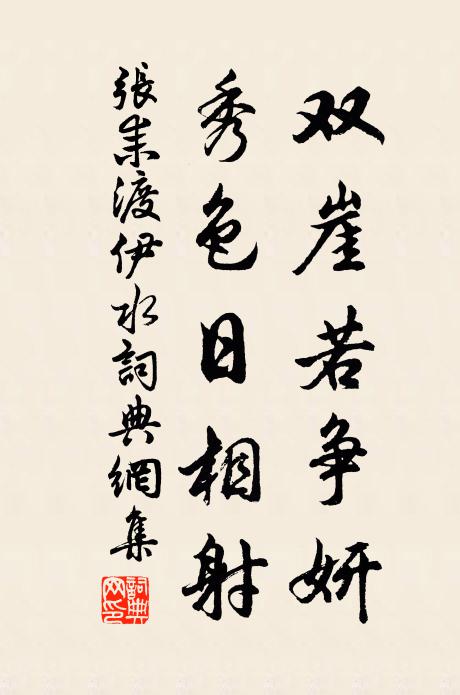 双崖若争妍
秀色日相射
張耒渡伊水詞典網集
詞典网印